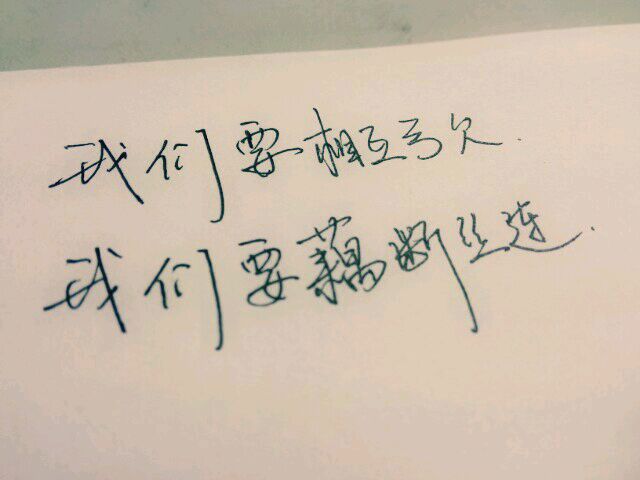 我们要相互亏欠.
我们要藕断丝连.